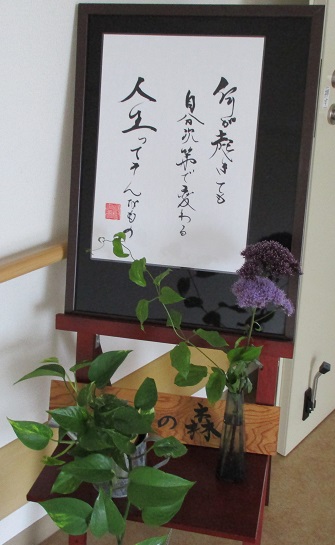 何が起きても
自分次第で変わる
人生ってそんなもの
の森